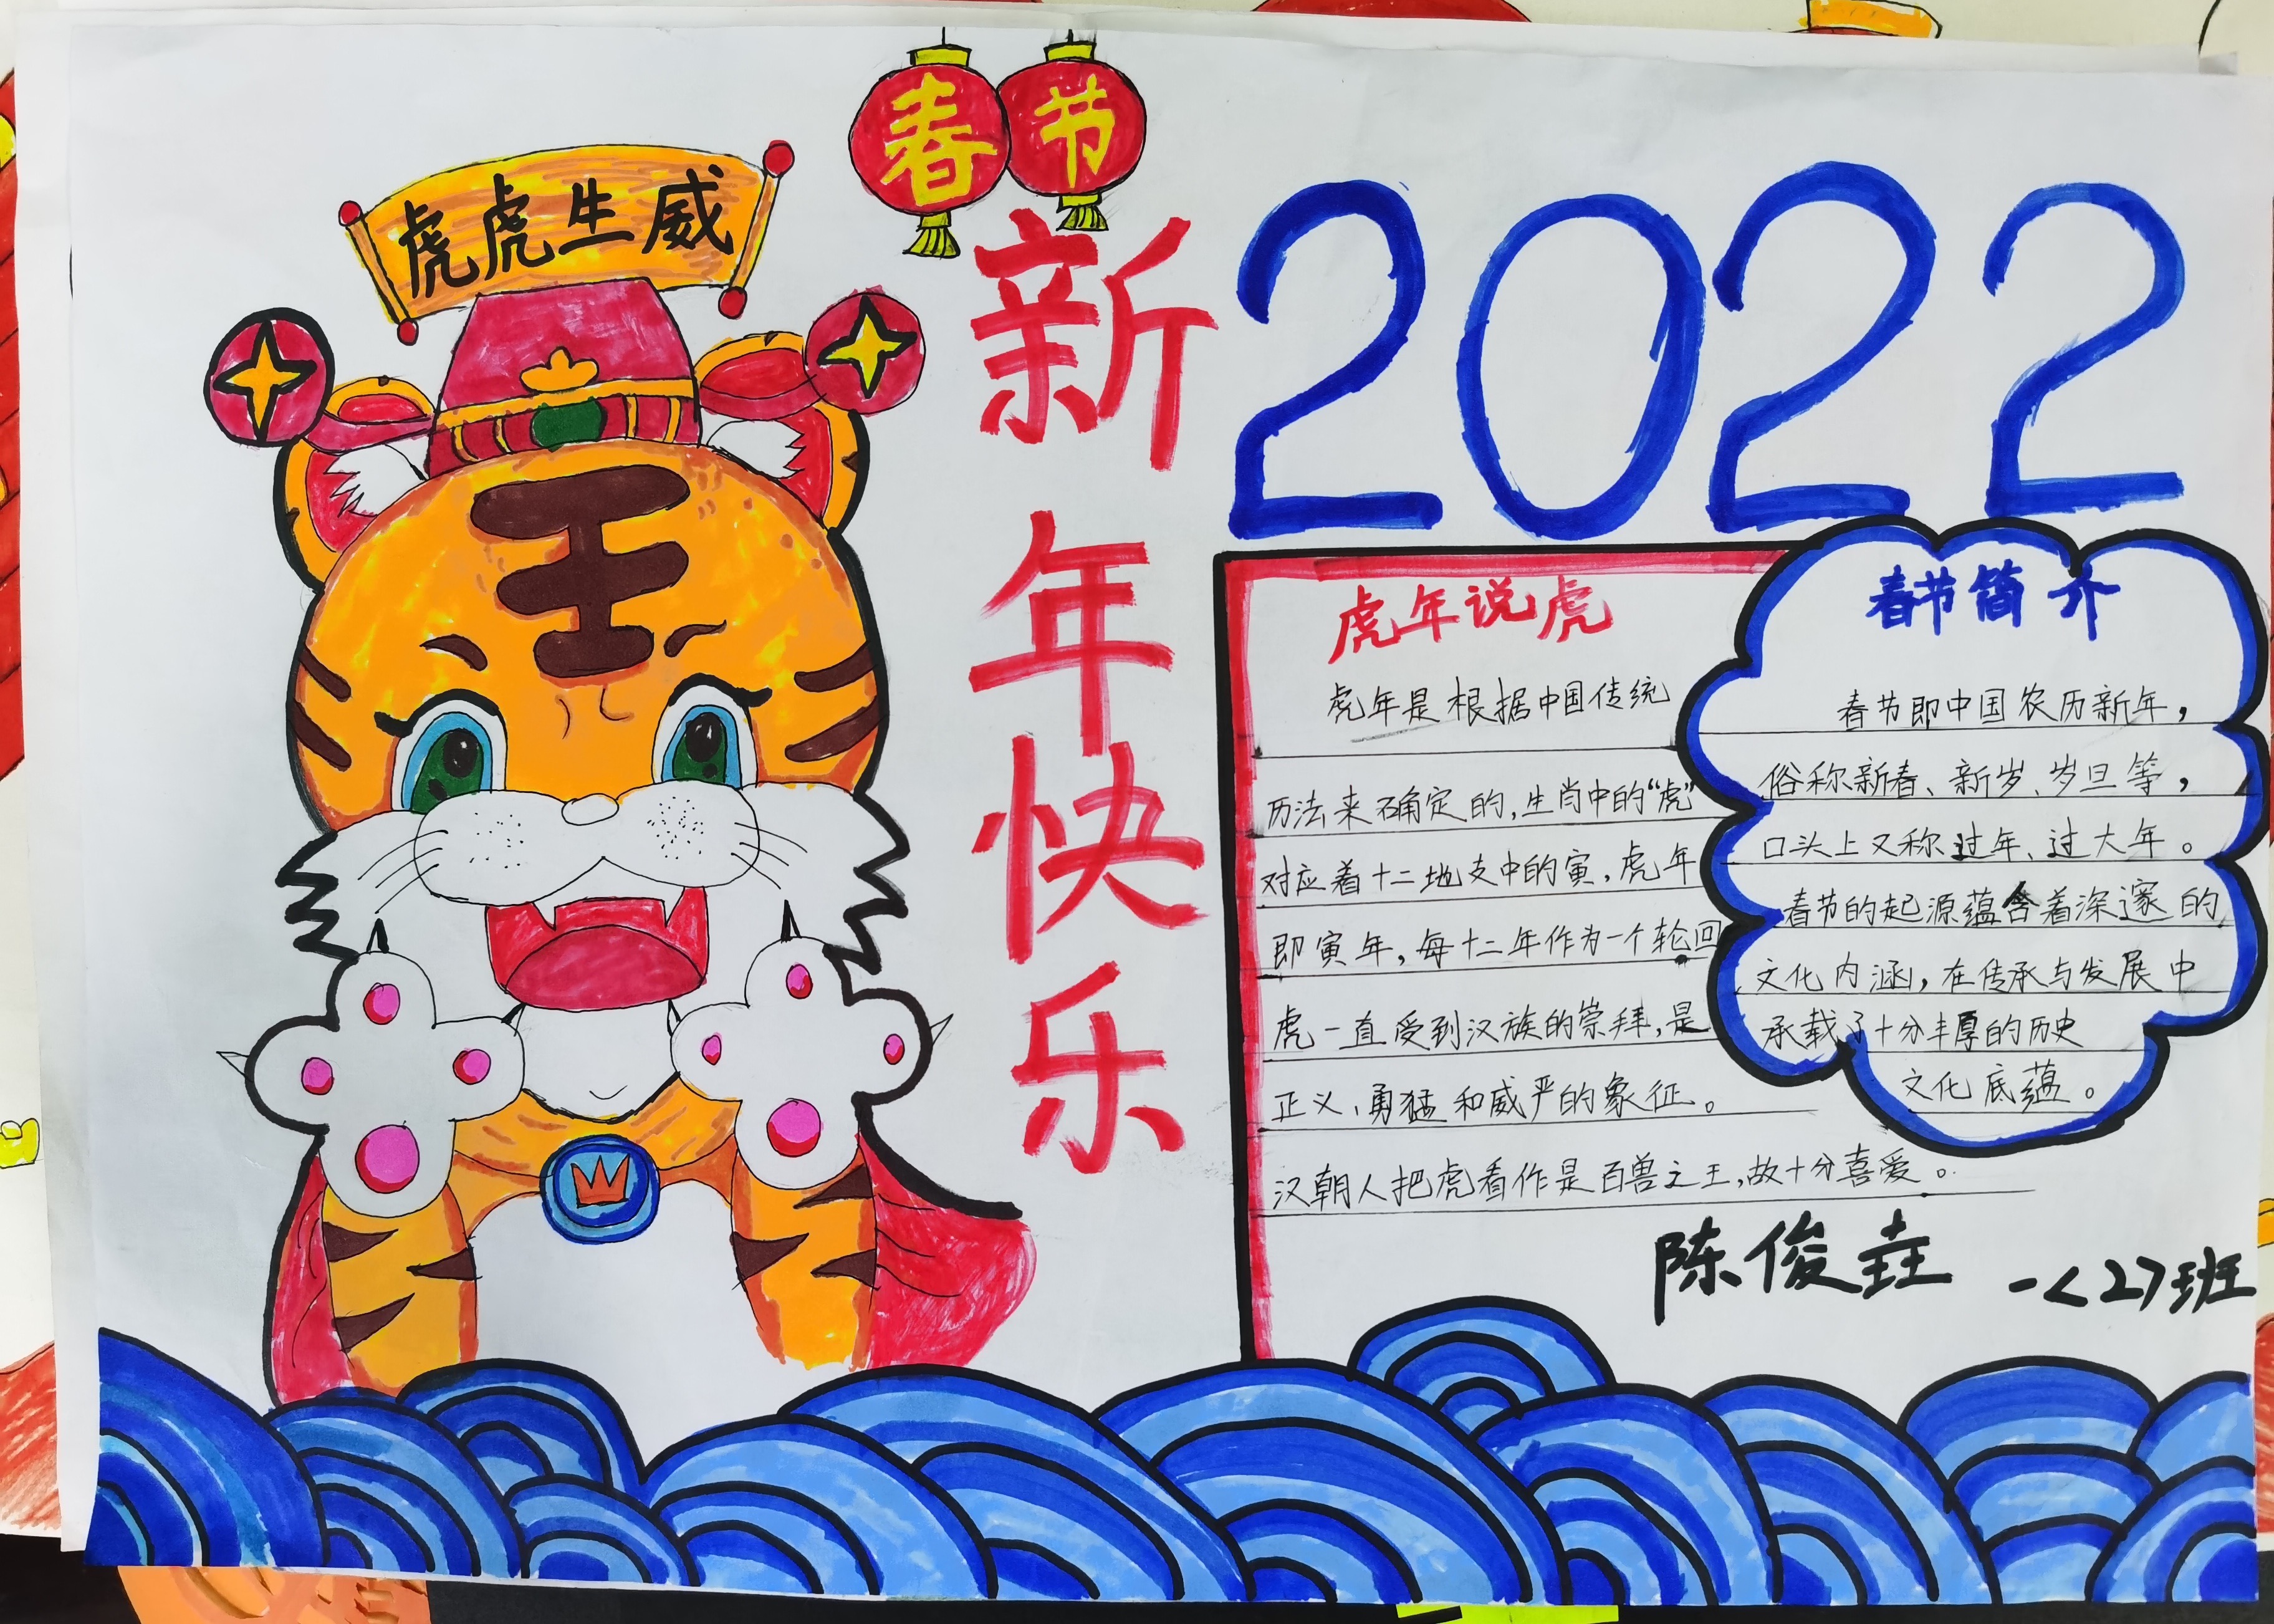 春节
虎虎生威
2022
新年快乐
王
虎年说虎
虎年是根据中国传统
历法来确定的,生肖中的“虎”
对应着十二地支中的寅,虎年
即寅年,每十二年作为一个轮回
虎一直受到汉族的崇拜,是
正义、勇猛和威严的象征。
汉朝人把虎看作是百兽之王,故十分喜爱。
春节简介
春节即中国农历新年,
俗称新春、新岁、岁旦等,
口头上又称过年、过大年。
春节的起源蕴含着深邃的
文化内涵,在传承与发展中
承载了十分丰厚的历史
文化底蕴。
陈俊垚
一<2>班